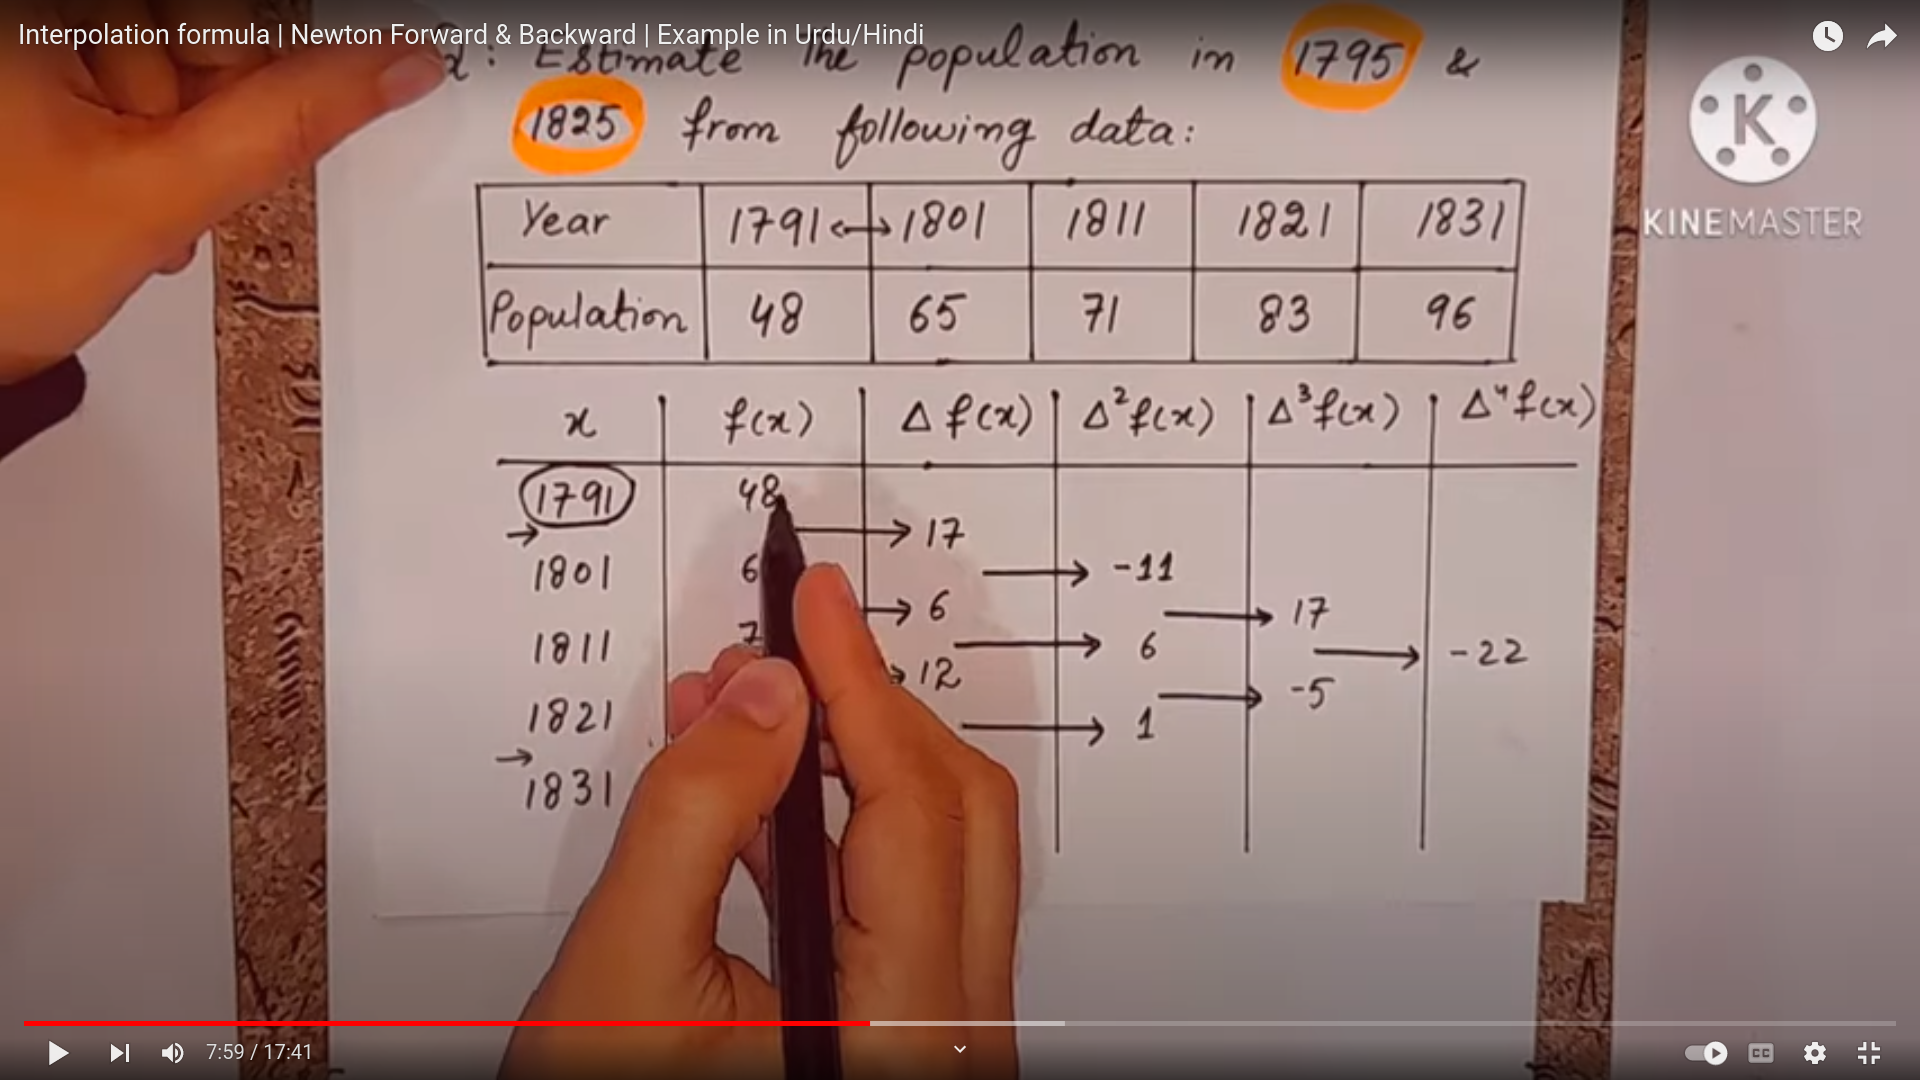 Interpolation formula | Newton Forward & Backward | Example in Urdu/Hindi
Estimate the population in 1795 &
1825 from following data:
K
KINEMASTER
Year 1791 ↔ 1801 1811 1821 1831
Population 48 65 71 83 96
x f(x) Δf(x) Δ²f(x) Δ³f(x) Δ⁴f(x)
1791 48
→ → 17
1801 6 → -11
→ 6 → 17
1811 7 → 6 → -22
→ 12 → -5
1821 → 1
→
1831
7:59 / 17:41
CC